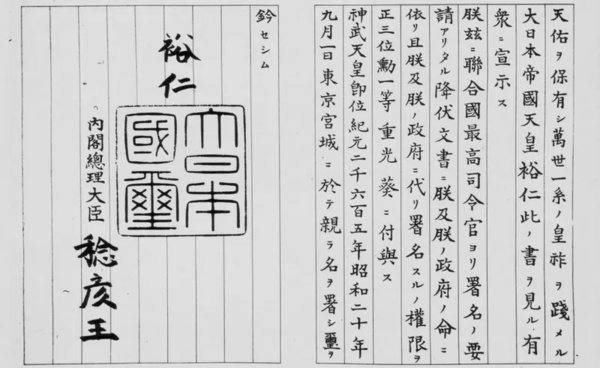 天佑ヲ保有シ萬世一系ノ皇祚ヲ踐メル
大日本帝國天皇裕仁此ノ書ヲ見ル有
衆ニ宣示ス
朕玆ニ聯合國最高司令官ヨリ署名ノ要
請アリタル降伏文書ニ朕及朕ノ政府ノ命ニ
依リ且朕及朕ノ政府ニ代リ署名スルノ權限ヲ
正三位勳一等重光葵ニ付與ス
神武天皇卽位紀元二千六百五年昭和二十年
九月一日東京宮城ニ於テ親ラ名ヲ署シ璽ヲ
鈐セシム
裕仁
大日本國璽
內閣總理大臣
稔彥王